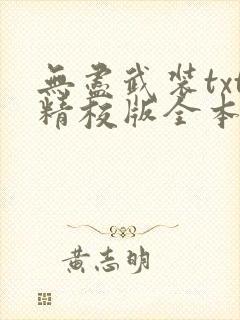 無盡武裝txt
精校版全本
黃志明